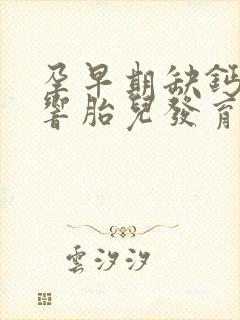 孕早期缺鈣
響胎兒發育
雲汐汐